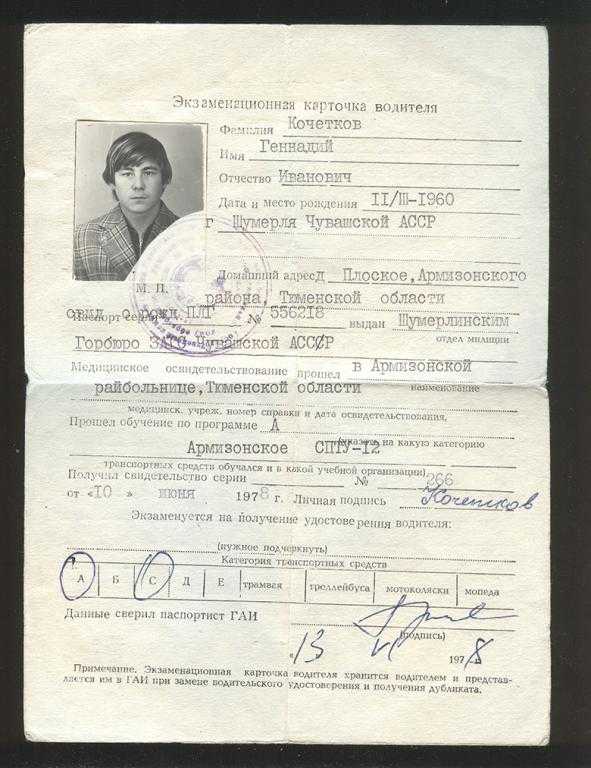 Экзаменационная карточка водителя
Фамилия Кочетков
Имя Геннадий
Отчество Иванович
Дата и место рождения II/III-1960
г Шумерля Чувашской АССР
М. П.
Домашний адрес д Плоское, Армизонского
района, Тюменской области
свид о рожд ПЛГ № 556218
Паспорт серии выдан Шумерлинским
Горбюро ЗАГС Чувашской АССР
отдел милиции
Медицинское освидетельствование прошел в Армизонской
райбольнице, Тюменской области наименование
медицинск. учреж. номер справки и дата освидетельствования.
Прошел обучение по программе А
(указать на какую категорию
Армизонское СПТУ-12
транспортных средств обучался и в какой учебной организации)
Получил свидетельство серии № 266
от «10» июня 1978 г. Личная подпись Кочетков
Экзаменуется на получение удостоверения водителя:
(нужное подчеркнуть)
Категория транспортных средств
А Б С Д Е трамвая троллейбуса мотоколяски мопеда
Данные сверил паспортист ГАИ
(подпись)
«13 VI 1978
Примечание. Экзаменационная карточка водителя хранится водителем и представ-
ляется им в ГАИ при замене водительского удостоверения и получения дубликата.